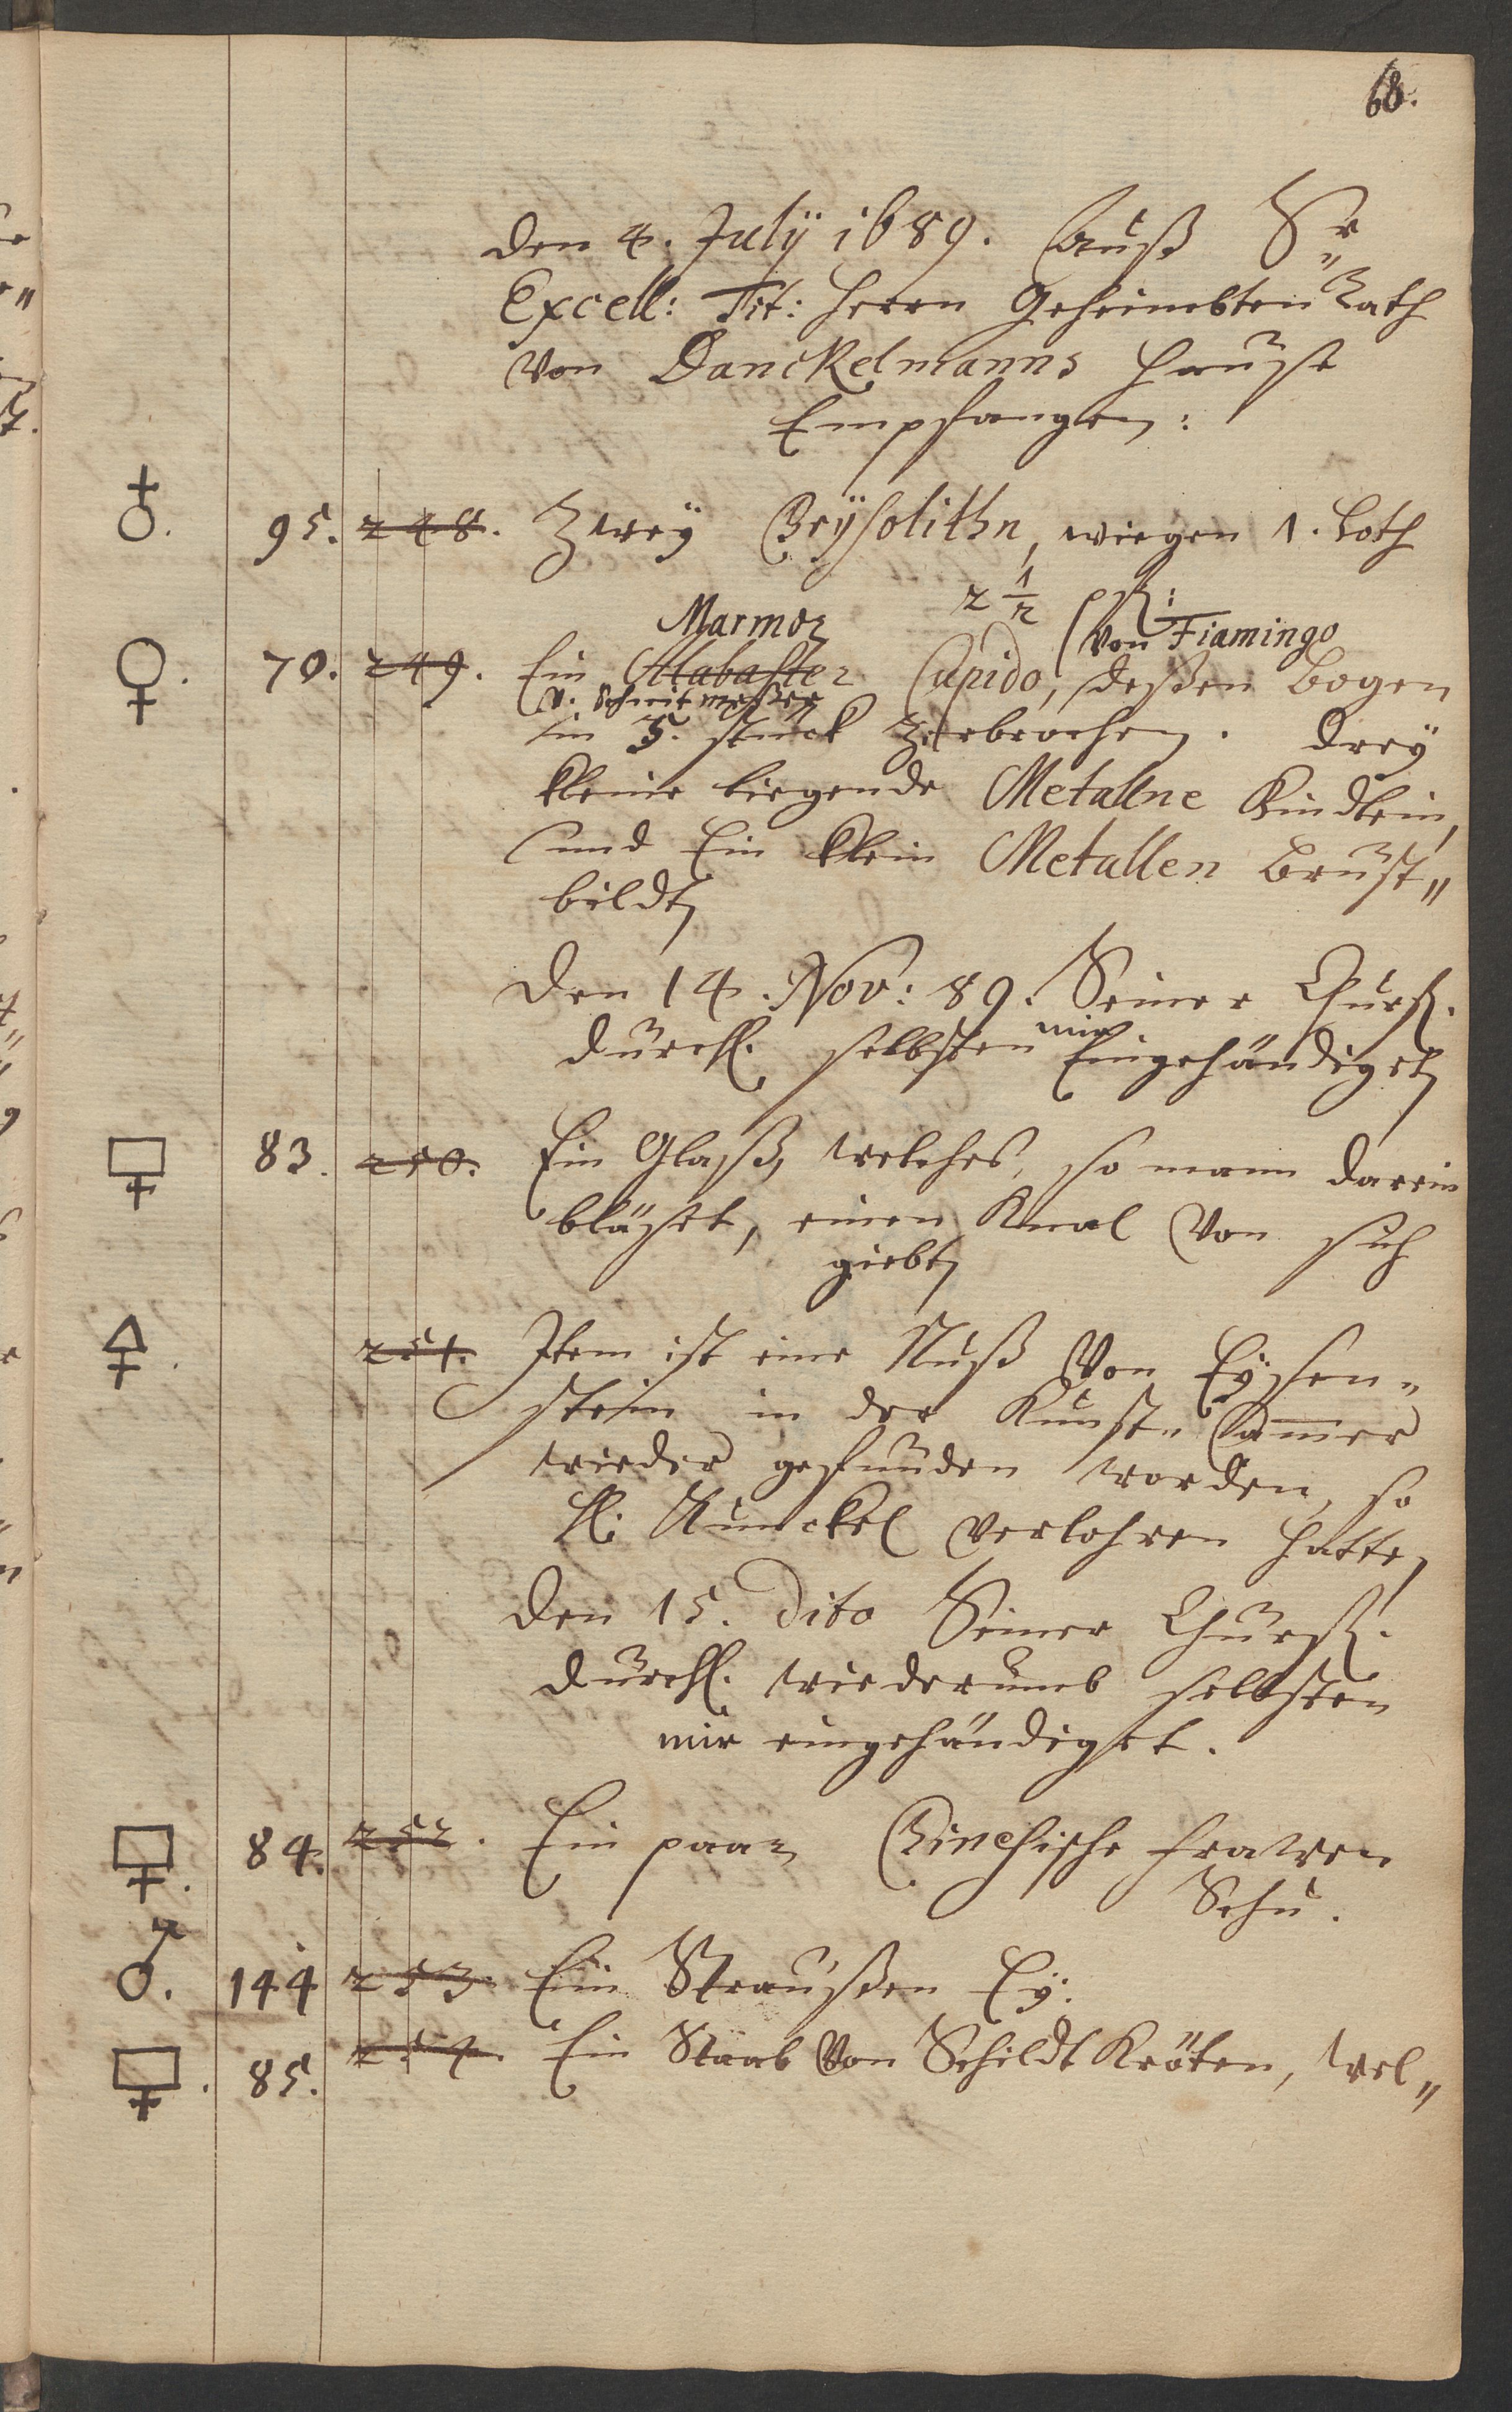 68.
den 4. Julÿ 1689. auß Sr
Excell: Tit: Herrn Geheimbten Rath
von Danckelmanns Hause
Empfangen:
♁. 95. 248. Zweÿ Crÿsolithn, wiegen 1. Loth
2 1/2
Marmor von Fiamingo
♀. 70. 249. Ein Alabaster Cupido, deßen Bogen
in 5. stück zerbrochen. Dreÿ
kleine liegende Metallne Kindlein,
und Ein klein Metallen Brust"
bildt
Den 14. Nov: 89. Seiner Churfl.
durchl. selbsten mir Eingehändiget
83. 250. Ein Glaß, welches, so mann darein
bläset, einen Knal von sich
giebt
251. Item ist eine Nuß von Eÿsen"
stein in der Kunst" Cammer
wieder gefunden worden, so
H. Kunckel verlohren hatte,
Den 15. dito Seiner Churfl.
durchl. wiederumb selbsten
mir eingehändiget.
84. 252. Ein paar Chinesische frawen
Schu.
♂. 144 253. Ein Straußen Eÿ.
85. 254. Ein Staab von Schildt Kröten, wel"